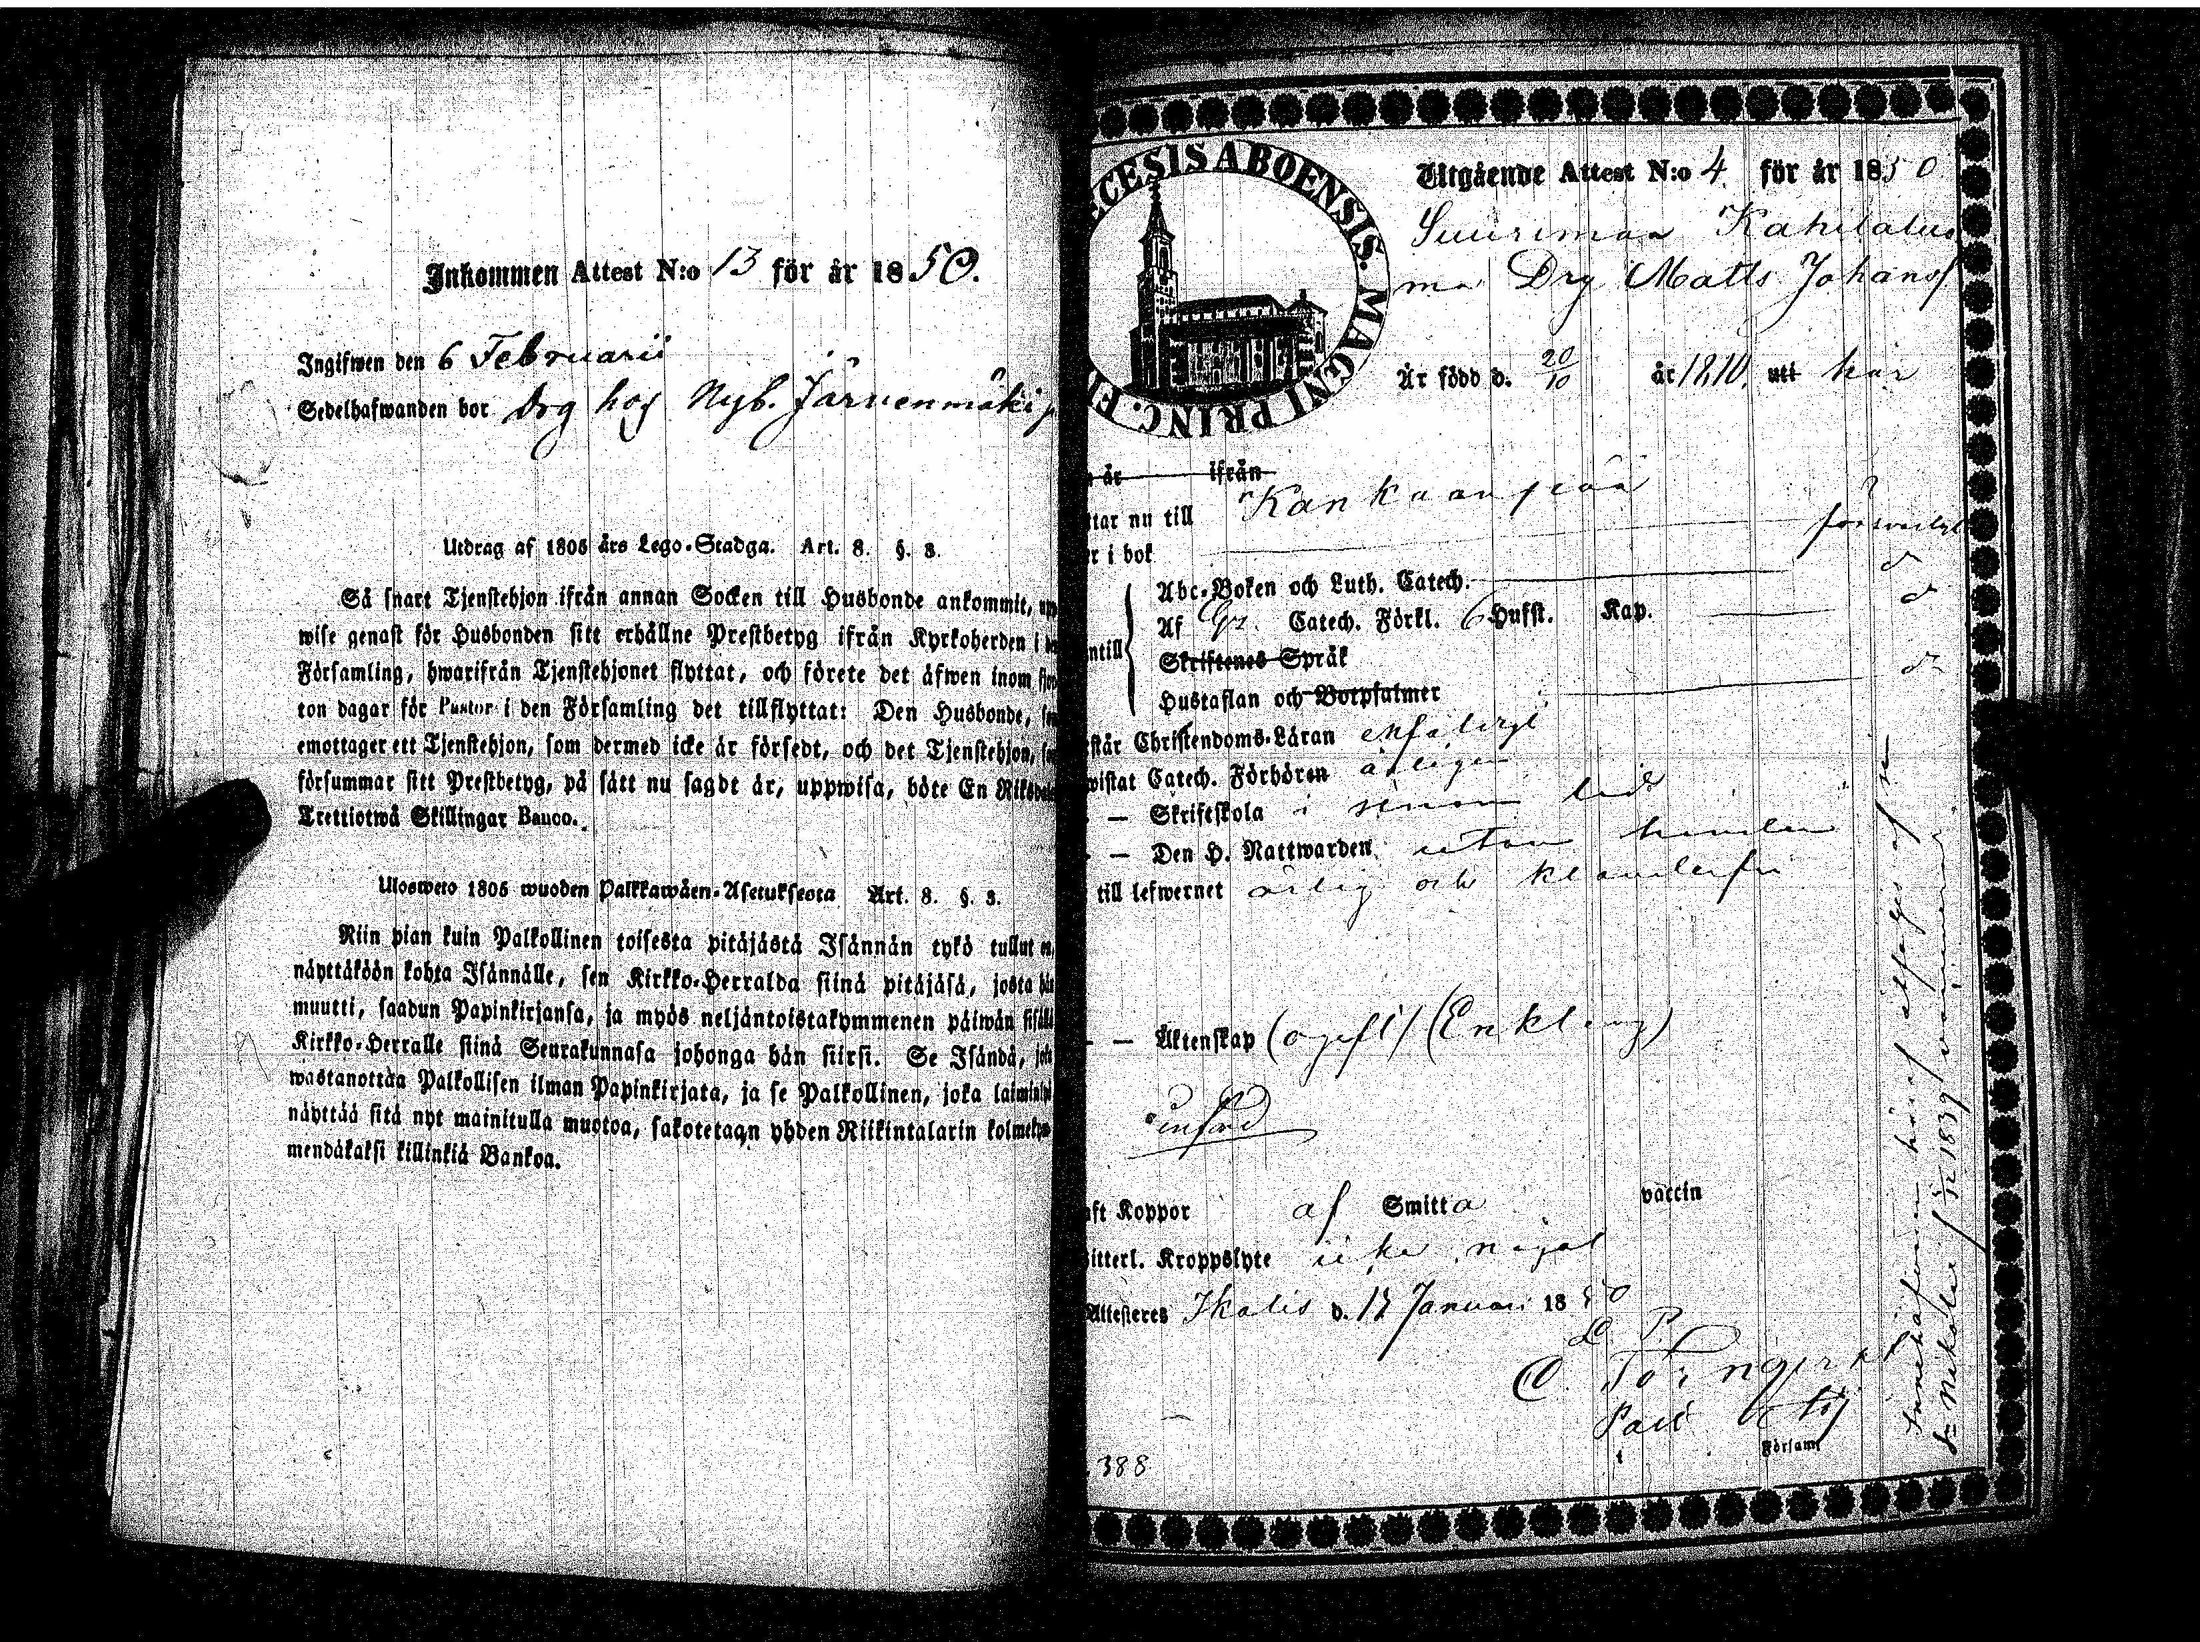 Inkommen Attest N:o 13 för år 1850.
Ingifwen den 6 Februarii
Sedelhafwanden bor Drg hos Nyb. Järvenmäki
Utdrag af 1805 års Lego-Stadga. Art. 8. §. 3.
Så snart Tjenstehjon ifrån annan Socken till Husbonde ankommit, upp
wise genast för Husbonden sitt erhållne Prestbetyg ifrån Kyrkoherden i
Församling, hwarifrån Tjenstehjonet flyttat, och förete det äfwen inom
ton dagar för Pastor i den Församling det tillflyttat: Den Husbonde,
emottager ett Tjenstehjon, som dermed icke är försedt, och det Tjenstehjon,
försummar sitt Prestbetyg, på sätt nu sagdt är, uppwisa, böte En Riksdal
Trettiotwå Skillingar Banco.
Ulosweto 1805 wuoden Palkkawäen-Asetuksesta Art. 8. §. 3.
Niin pian kuin Palkollinen toisesta pitäjästä Isännän tykö tullut on,
näyttäköön kohta Isännälle, sen Kirkko-Herralda siinä pitäjäsä, josta hän
muutti, saadun Papinkirjansa, ja myös neljäntoistakymmenen päiwän sisällä
Kirkko-Herralle siinä Seurakunnasa johonga hän siirsi. Se Isändä, joka
wastanottaa Palkollisen ilman Papinkirjata, ja se Palkollinen, joka laiminlyö
näyttää sitä nyt mainitulla muotoa, sakotetaan yhden Riikintalarin kolmekym
mendäkaksi killinkiä Bankoa.
ECESIS ABOENSIS. MAGNI PRINC. FI
Utgående Attest N:o 4 för år 1850
Suurimaa Kahilaluo
ma Drg Matts Johanss
Är född d. 20/10 år 1810. uti här
år ifrån
ttar nu till Kankaanpää
er i bok försvarligt
Abc-Boken och Luth. Catech. d
Af Catech. Förkl. 6 Hufst. Kap. d
ntill Skriftenes Språk
Hustaflan och Botpsalmer d
står Christendoms-Läran enfaldigt
wistat Catech. Förhören årligen
— Skriftskola i sinom tid
— Den H. Nattwarden utan hinder
till lefwernet ärlig och klanderfri
— Äktenskap (ogift) (Enkling)
aft Koppor af Smitta vaccin
itterl. Kroppslyte icke något
Attesteres Ikalis d. Januari 1850
C.
Församl
388